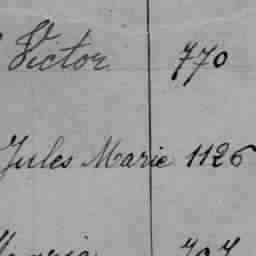 Victor 770
Jules Marie 1126